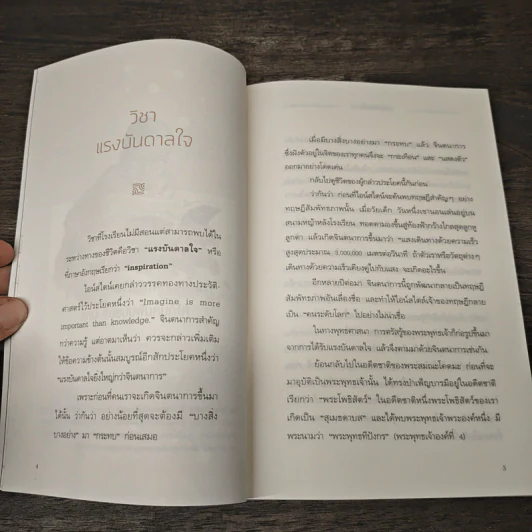 วิชา
แรงบันดาลใจ
วิชาที่โรงเรียนไม่มีสอนแต่สามารถพบได้ใน
ระหว่างทางของชีวิตคือวิชา "แรงบันดาลใจ" หรือ
ที่ภาษาอังกฤษเรียกว่า "inspiration"
ไอน์สไตน์เคยกล่าววรรคทองทางประวัติ-
ศาสตร์ไว้ประโยคหนึ่งว่า "Imagine is more
important than knowledge." จินตนาการสำคัญ
กว่าความรู้ แต่อาตมาเห็นว่า ควรจะกล่าวเพิ่มเติม
ให้ข้อความข้างต้นนั้นสมบูรณ์อีกสักประโยคหนึ่งว่า
"แรงบันดาลใจยิ่งใหญ่กว่าจินตนาการ"
เพราะก่อนที่คนเราจะเกิดจินตนาการขึ้นมา
ได้นั้น ว่ากันว่า อย่างน้อยที่สุดจะต้องมี "บางสิ่ง
บางอย่าง" มา "กระทบ" ก่อนเสมอ
4
เมื่อมีบางสิ่งบางอย่างมา "กระทบ" แล้ว จินตนาการ
ซึ่งฝังตัวอยู่ในจิตของเราทุกคนจึงจะ "กระเทือน" และ "แสดงตัว"
ออกมาอย่างโดดเด่น
กลับไปดูชีวิตของผู้กล่าวประโยคนี้กันก่อน
ว่ากันว่า ก่อนที่ไอน์สไตน์จะค้นพบทฤษฎีสำคัญๆ อย่าง
ทฤษฎีสัมพัทธภาพนั้น เมื่อวัยเด็ก วันหนึ่งเขานอนเล่นอยู่บน
สนามหญ้าหลังโรงเรียน ทอดตามองขึ้นสู่ท้องฟ้ากว้างไกลสุดลูกหู
ลูกตา แล้วเกิดจินตนาการขึ้นมาว่า "แสงเดินทางด้วยความเร็ว
สูงสุดประมาณ 5,000,000 เมตรต่อวินาที ถ้าตัวเราหรือวัตถุต่างๆ
เดินทางด้วยความเร็วเคียงคู่ไปกับแสง จะเกิดอะไรขึ้น
อีกหลายปีต่อมา จินตนาการนี้ถูกพัฒนากลายเป็นทฤษฎี
สัมพัทธภาพอันเลื่องชื่อ และทำให้ไอน์สไตน์เจ้าของทฤษฎีกลาย
เป็น "คนระดับโลก" ไปอย่างไม่น่าเชื่อ
ในทางพุทธศาสนา การตรัสรู้ของพระพุทธเจ้าก็ก่อรูปขึ้นมา
จากการได้รับแรงบันดาลใจ แล้วจึงตามมาด้วยจินตนาการเช่นกัน
ย้อนกลับไปในอดีตชาติของพระสมณะโคดมะ ก่อนที่จะ
มาอุบัติเป็นพระพุทธเจ้านั้น ได้ทรงบำเพ็ญบารมีอยู่ในอดีตชาติ
เรียกว่า "พระโพธิสัตว์" ในอดีตชาติหนึ่งพระโพธิสัตว์ของเรา
เกิดเป็น "สุเมธดาบส" และได้พบพระพุทธเจ้าพระองค์หนึ่ง มี
พระนามว่า "พระพุทธทีปังกร" (พระพุทธเจ้าองค์ที่ ๔)
5